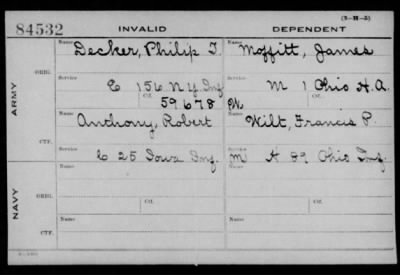 (3-H-5)
84532 INVALID DEPENDENT
Name Decker, Philip T. Name Moffitt, James
ORIG.
Service C 156 N.Y. Inf Service M 1 Ohio H.A.
Ctf. Ctf.
ARMY
59678
Name Anthony, Robert Name Wilt, Francis P.
CTF.
Service C 25 Iowa Inf. Service M H 89 Ohio Inf.
Name Name
ORIG.
Ctf. Ctf.
NAVY
Name Name
CTF.